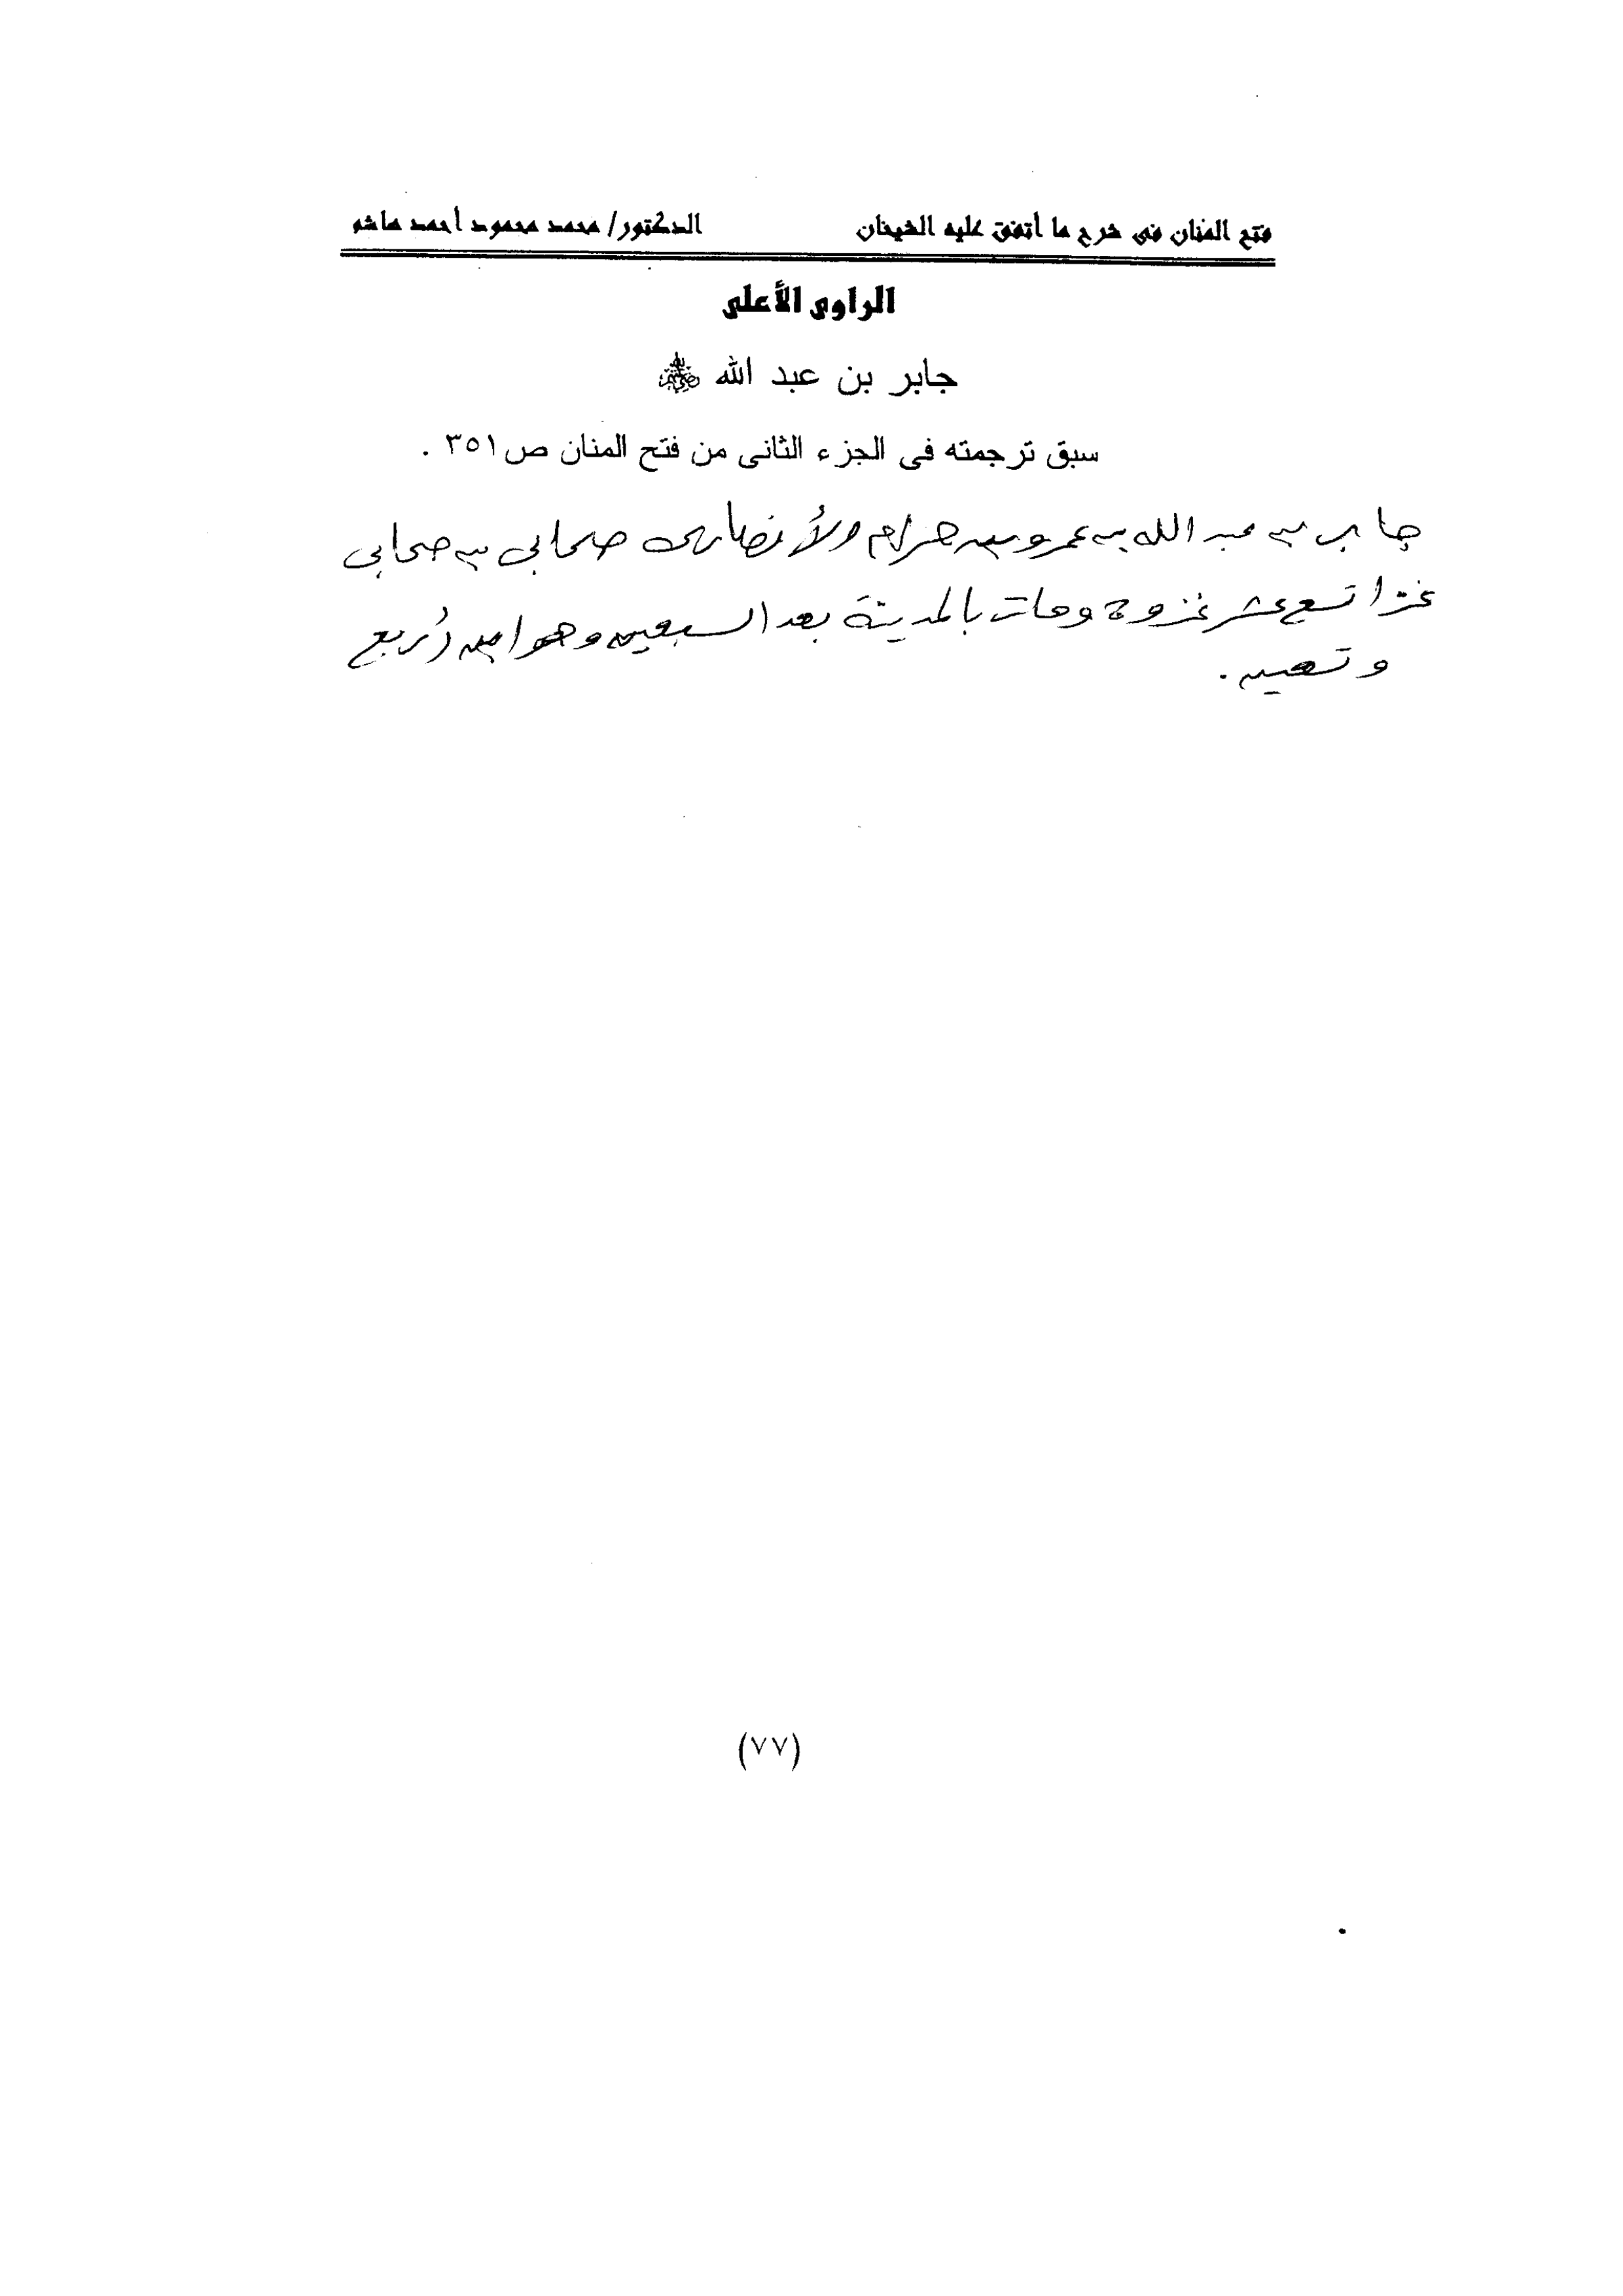 فتح المنان فى شرح ما أتفق عليه الشيخان الدكتور/ محمد محمود أحمد هاشم
الراوى الأعلى
جابر بن عبد الله رضي الله عنه
سبق ترجمته فى الجزء الثانى من فتح المنان ص ٣٥١ .
جابر بن عبد الله بن عمرو بن حرام الأنصارى صحابى بن صحابى
غزا تسع عشر غزوة ومات بالمدينة بعد السبعين وهو ابن أربع
وتسعين .
(٧٧)